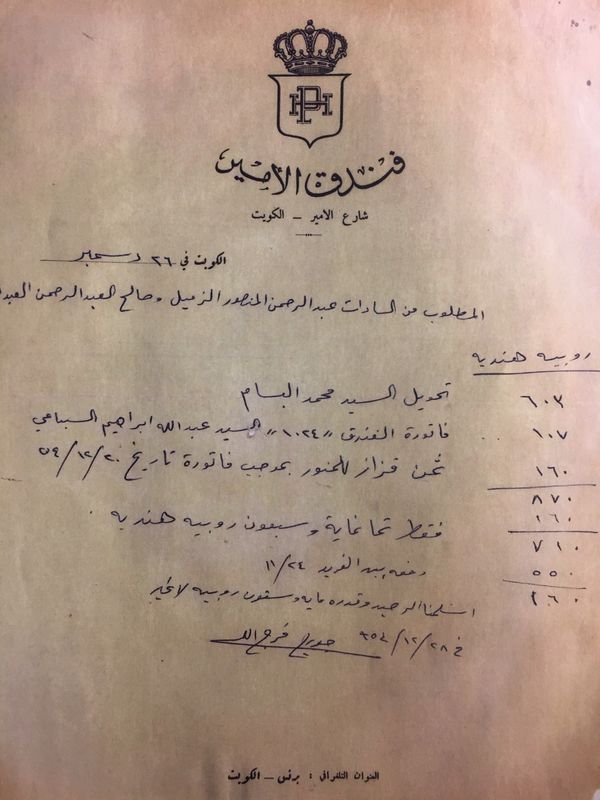 PH
فندق الأمير
شارع الامير – الكويت
الكويت في ٢٦ دسمبر
المطلوب من السادات عبدالرحمن المنصور الزميل وصالح العبدالرحمن
روبيه هنديه
٦٠٣ تحويل السيد محمد البسام
١٠٧ فاتورة الفندق "١٠٢٤" السيد عبدالله ابراهيم السباعي
١٦٠ ثمن قزاز للخنور بموجب فاتورة تاريخ ٥٤/١٢/٢٠
٨٧٠
فقط ثمانماية وسبعون روبيه هنديه
١٦٠
٧١٠
٥٥٠ دفعه بيد الفريد ١١/٢٤
١٦٠
استلمنا الرصيد وقدره مايه وستون روبيه لاغير
في ٩٥٤/١٢/٢٨ جورج فرج الله
العنوان التلغرافي : برنس – الكويت